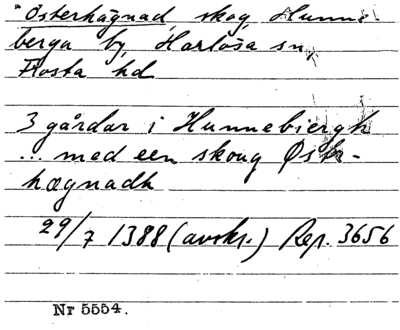 "Österhägnad, skog, Hunne-
berga by, Harlösa sn,
Frosta hd
3 gårdar i Hunnebiergh
... med een skoug Østr-
hægnadh
29/7 1388 (avskr.) Rep. 3656
Nr 5554.